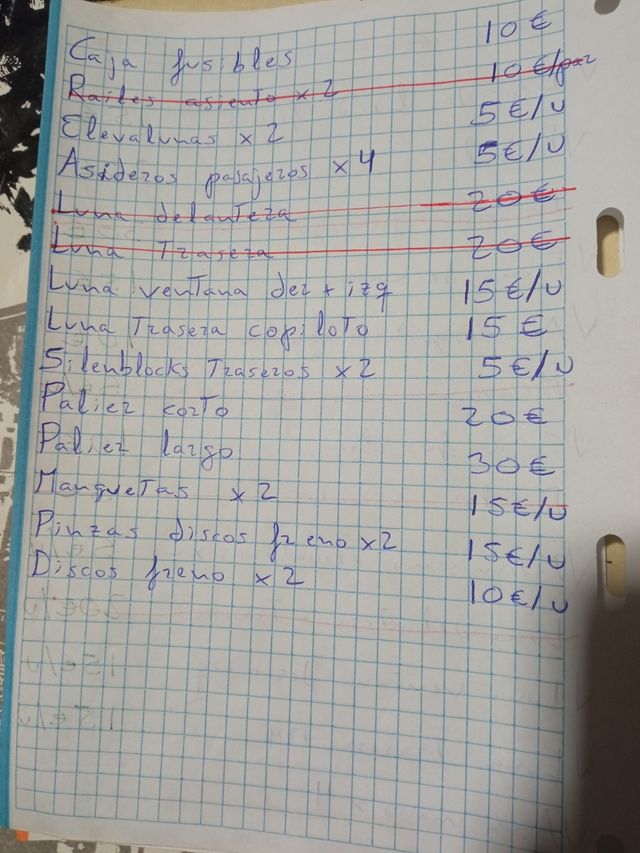 Caja fusibles 10€
Railes asiento x2 10€/par
Elevalunas x2 5€/u
Asideros pasajeros x4 5€/u
Luna delantera 20€
Luna Trasera 20€
Luna ventana der + izq 15€/u
Luna Trasera copiloto 15€
Silenblocks Traseros x2 5€/u
Palier corto 20€
Palier largo 30€
Manguetas x2 15€/u
Pinzas discos freno x2 15€/u
Discos freno x2 10€/u